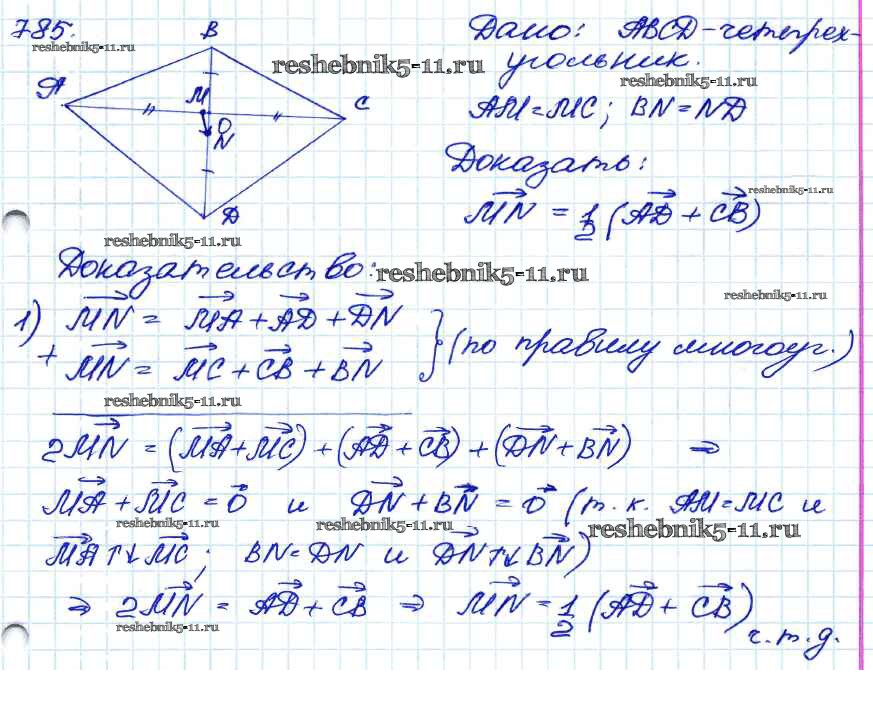 785.
reshebnik5-11.ru
B
A
M
C
O
N
D
reshebnik5-11.ru
Дано: ABCD - четырех-
угольник.
reshebnik5-11.ru
AM = MC; BN = ND
Доказать:
reshebnik5-11.ru
\overrightarrow{MN} = \frac{1}{2} (\overrightarrow{AD} + \overrightarrow{CB})
reshebnik5-11.ru
Доказательство:
reshebnik5-11.ru
reshebnik5-11.ru
1) \overrightarrow{MN} = \overrightarrow{MA} + \overrightarrow{AD} + \overrightarrow{DN}
+ \overrightarrow{MN} = \overrightarrow{MC} + \overrightarrow{CB} + \overrightarrow{BN} } (по правилу многоуг.)
reshebnik5-11.ru
2\overrightarrow{MN} = (\overrightarrow{MA} + \overrightarrow{MC}) + (\overrightarrow{AD} + \overrightarrow{CB}) + (\overrightarrow{DN} + \overrightarrow{BN}) ⇒
\overrightarrow{MA} + \overrightarrow{MC} = \vec{0} и \overrightarrow{DN} + \overrightarrow{BN} = \vec{0} (т.к. AM = MC и
reshebnik5-11.ru reshebnik5-11.ru reshebnik5-11.ru
\overrightarrow{MA} ↑↓ \overrightarrow{MC}; BN = DN и \overrightarrow{DN} ↑↓ \overrightarrow{BN})
⇒ 2\overrightarrow{MN} = \overrightarrow{AD} + \overrightarrow{CB} ⇒ \overrightarrow{MN} = \frac{1}{2} (\overrightarrow{AD} + \overrightarrow{CB})
reshebnik5-11.ru
ч.т.д.